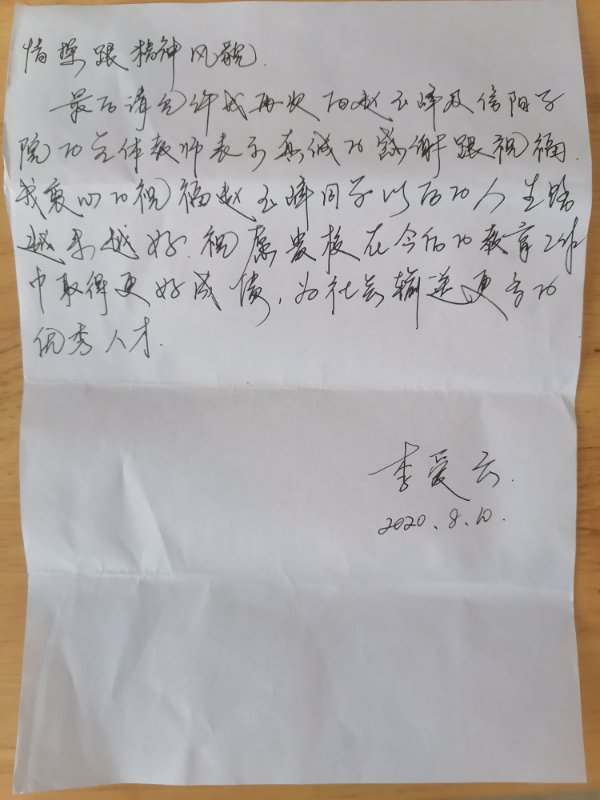 情操跟精神风貌.
最后请允许我再次向赵玉峰及信阳学
院的全体教师表示真诚的感谢跟祝福.
我衷心的祝福赵玉峰同学以后的人生路
越来越好.祝愿贵校在今后的教育工作
中取得更好成绩,为社会输送更多的
优秀人才.
李爱云.
2020.8.10.